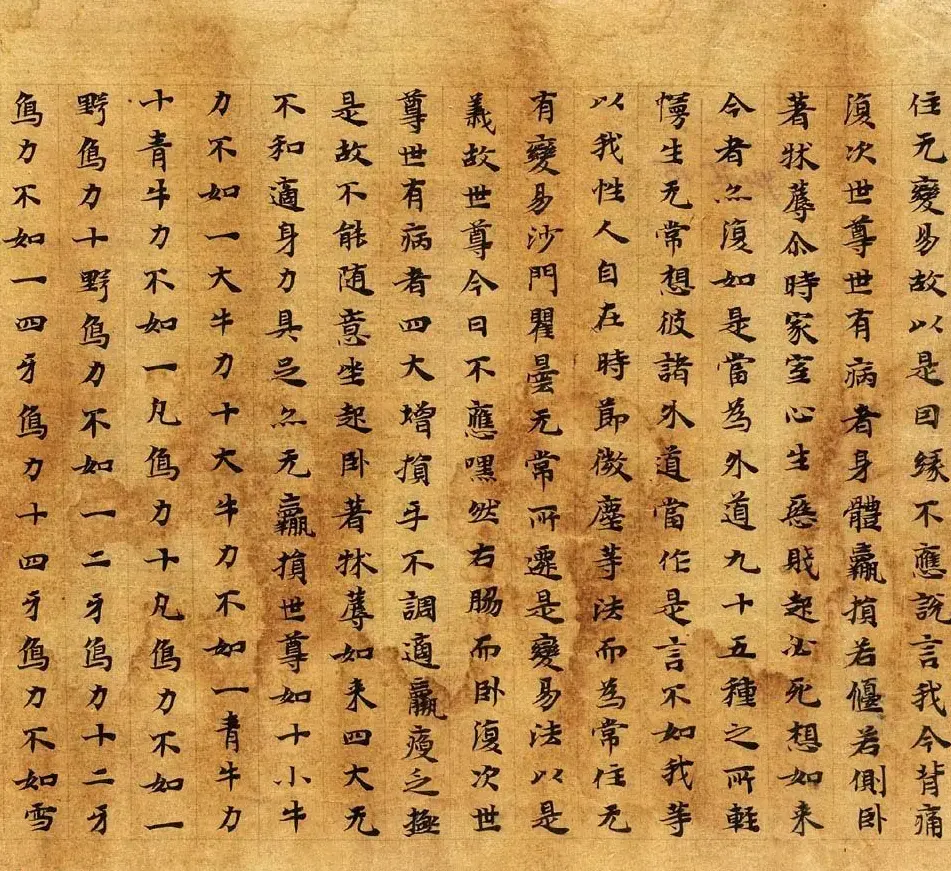 住无變易故以是因縁不應説言我今背痛
復次世尊世有病者身體羸損若偃若側卧
著牀蓐尒時家室心生惡賎起必死想如来
今者亦復如是當為外道九十五種之所軽
慢生无常想彼諸外道當作是言不如我等
以我性人自在時節微塵等法而為常住无
有變易沙門瞿曇无常所遷是變易法以是
義故世尊今日不應嘿然右脇而卧復次世
尊世有病者四大增損㸦不調適羸瘦乏極
是故不能随意坐起卧著牀蓐如来四大无
不和適身力具足亦无羸損世尊如十小牛
力不如一大牛力十大牛力不如一青牛力
十青牛力不如一凡象力十凡象力不如一
野象力十野象力不如一二牙象力十二牙
象力不如一四牙象力十四牙象力不如雪